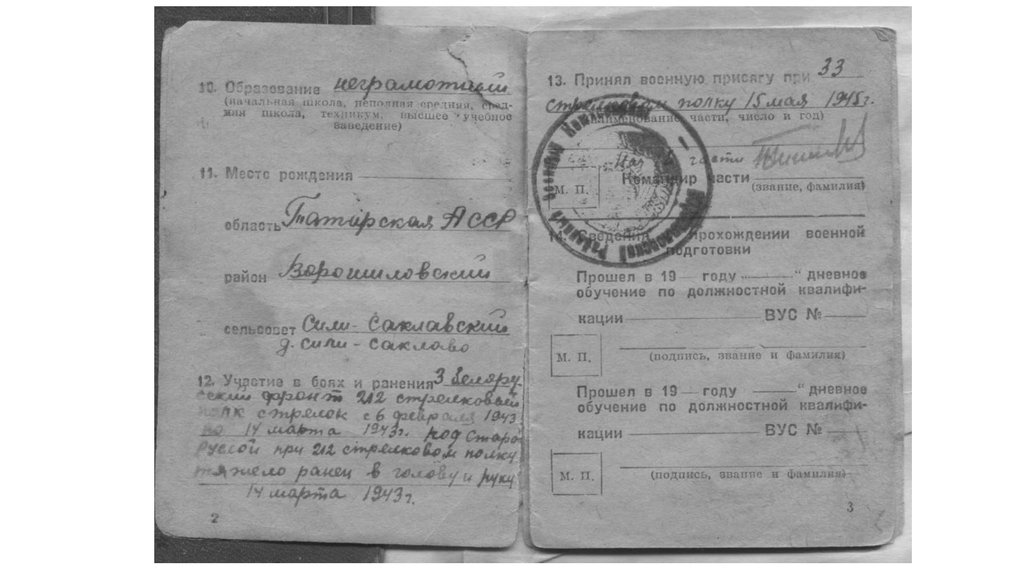 10. Образование неграмотный
(начальная школа, неполная средняя, сред-
няя школа, техникум, высшее учебное
заведение)
11. Место рождения
область Татарская АССР
район Ворошиловский
сельсовет Сили-Саклавский
д. Сили-Саклаво
12. Участие в боях и ранения 3 Белору
сский фронт 212 стрелковый
полк стрелок с 6 февраля 1943
по 14 марта 1943г. под Старо
Руссой при 212 стрелковом полку
тяжело ранен в голову и руку
14 марта 1943г.
2
13. Принял военную присягу при 33
стрелковом полку 15 мая 1945г.
(наименование части, число и год)
Нач части
М. П.
Командир части
(звание, фамилия)
14. Сведения прохождении военной
подготовки
Прошел в 19 году „ “ дневное
обучение по должностной квалифи-
кации ВУС №
М. П.
(подпись, звание и фамилия)
Прошел в 19 году “ дневное
обучение по должностной квалифи-
кации ВУС №
М. П.
(подпись, звание и фамилия)
3